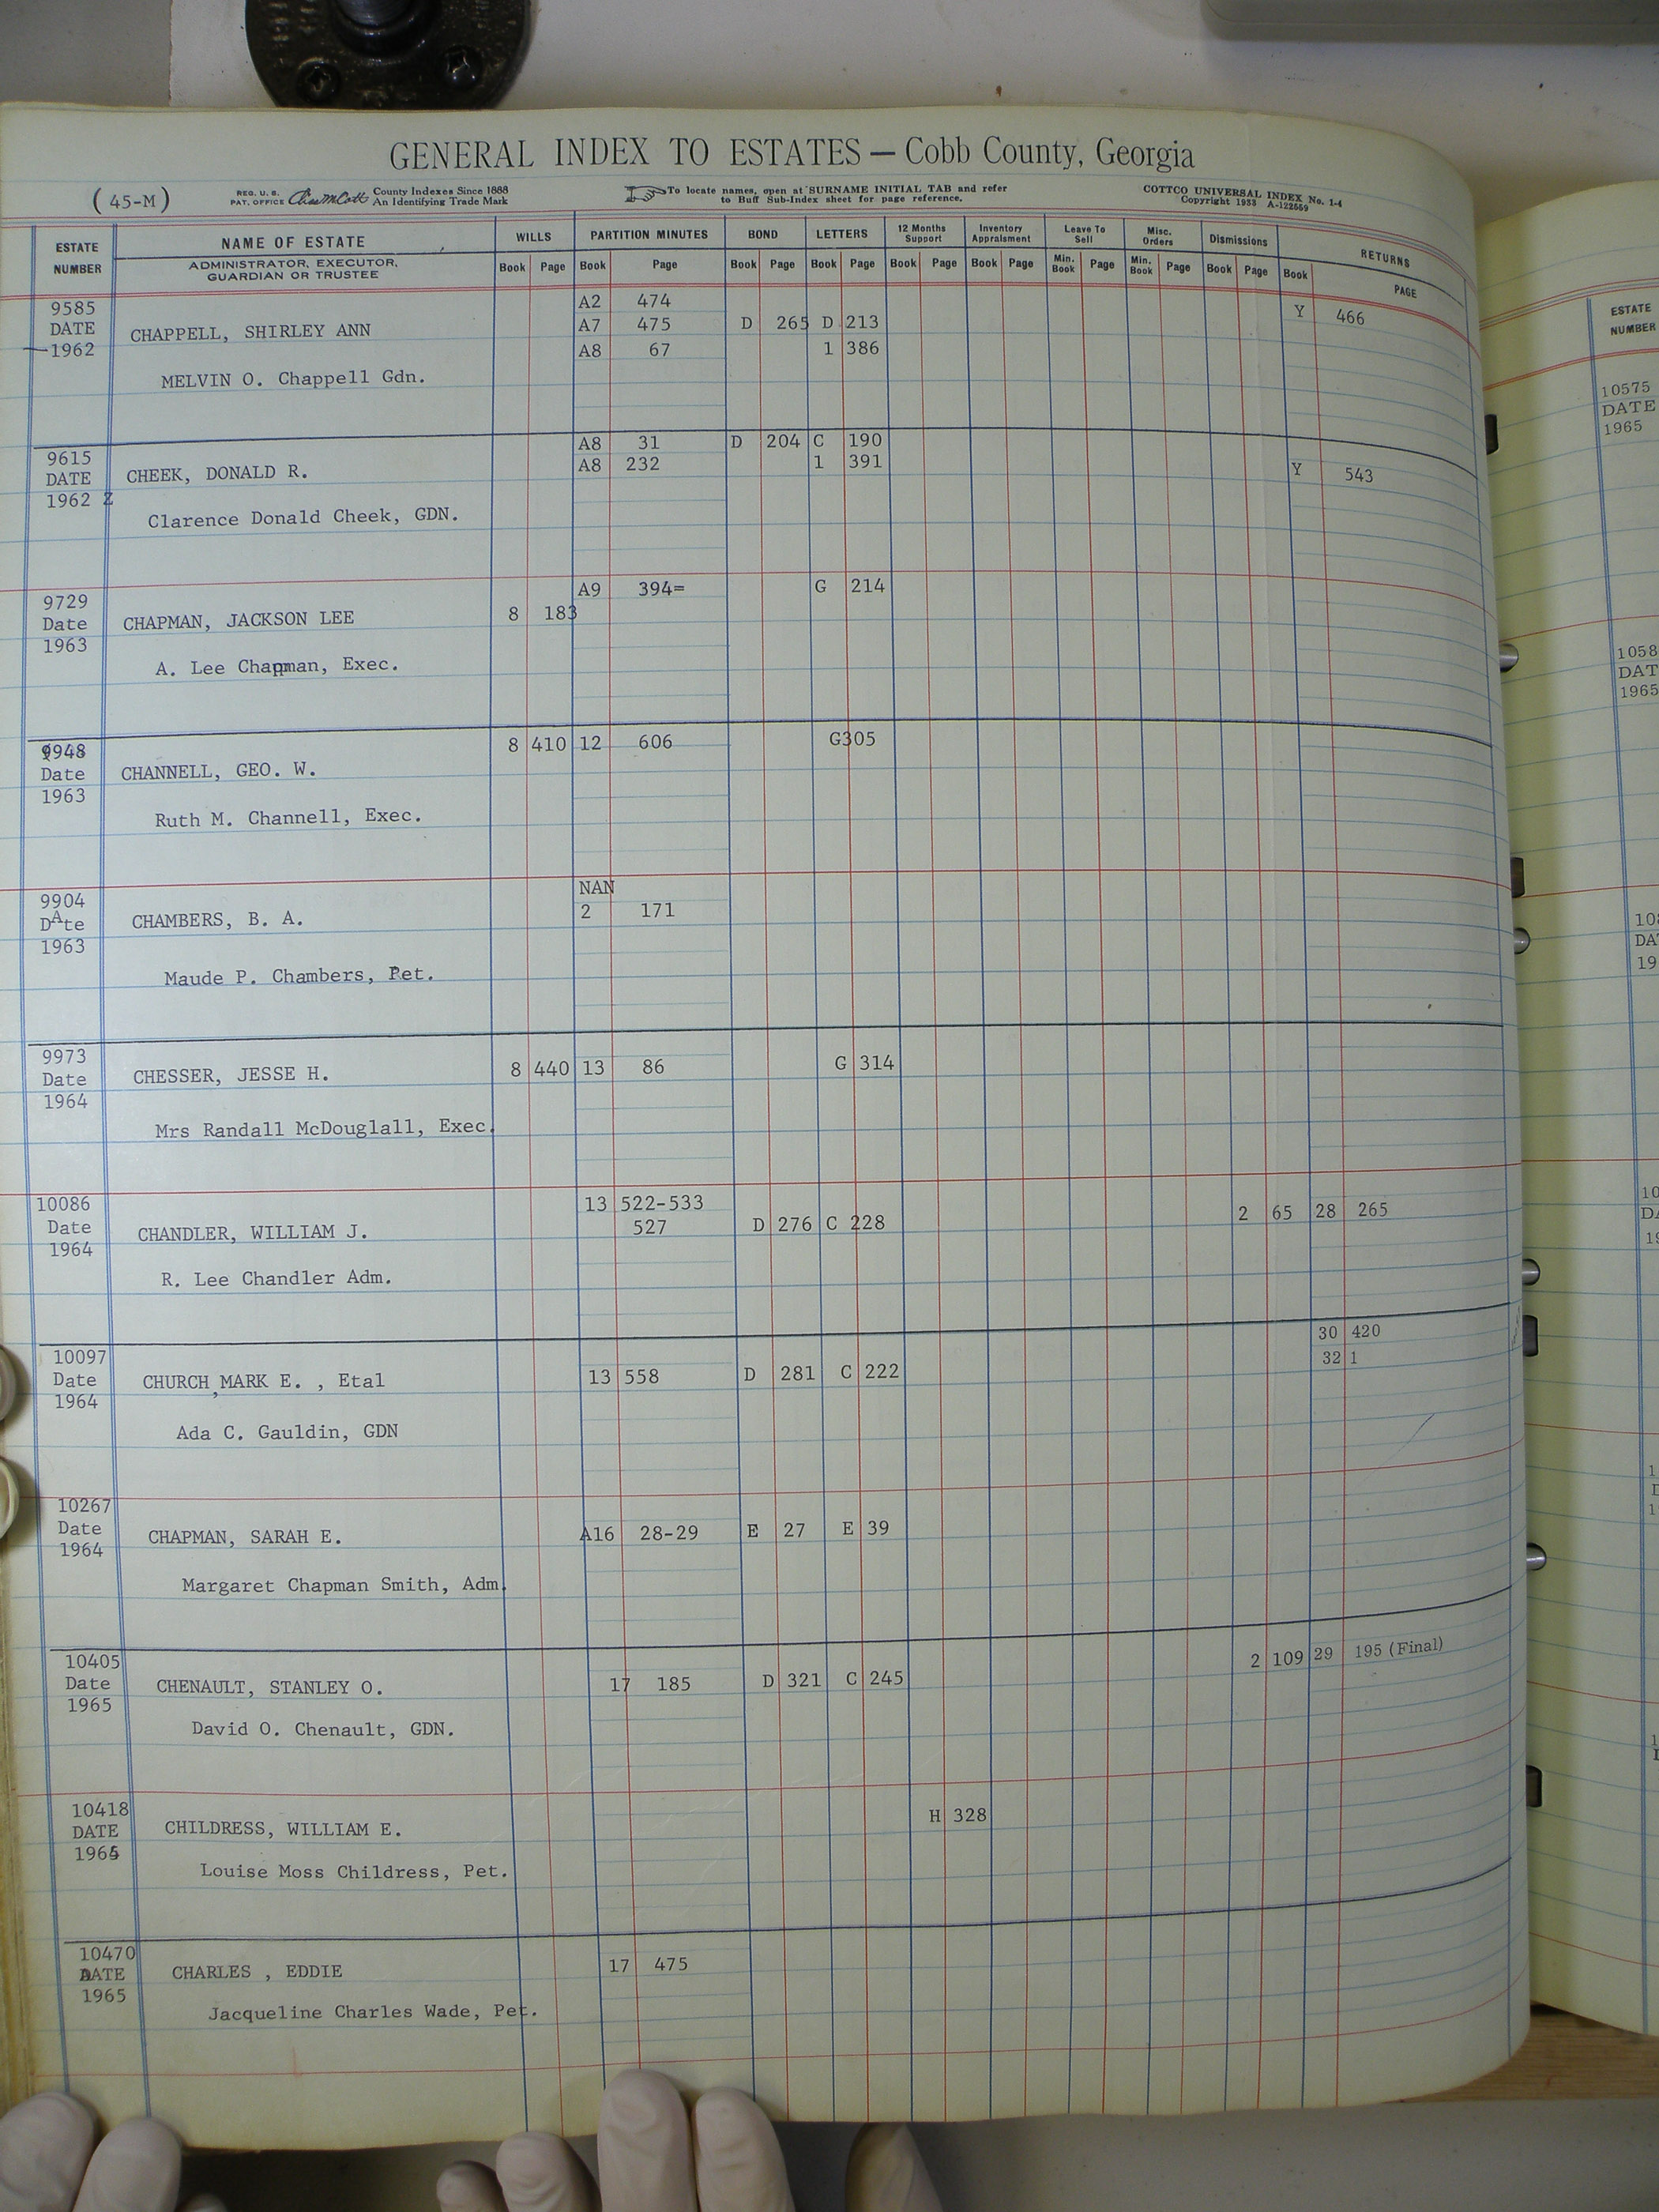 GENERAL INDEX TO ESTATES — Cobb County, Georgia
(45-M) REG. U. S. PAT. OFFICE Chas M Cott County Indexes Since 1888 An Identifying Trade Mark To locate names, open at SURNAME INITIAL TAB and refer to Buff Sub-Index sheet for page reference. COTTCO UNIVERSAL INDEX No. 1-4 Copyright 1933 A-122559
ESTATE NUMBER NAME OF ESTATE WILLS PARTITION MINUTES BOND LETTERS 12 Months Support Inventory Appraisment Leave To Sell Misc. Orders Dismissions RETURNS
ADMINISTRATOR, EXECUTOR, GUARDIAN OR TRUSTEE Book Page Book Page Book Page Book Page Book Page Book Page Min. Book Page Min. Book Page Book Page Book PAGE
9585 A2 474
DATE CHAPPELL, SHIRLEY ANN A7 475 D 265 D 213 Y 466
1962 A8 67 1 386
MELVIN O. Chappell Gdn.
9615 A8 31 D 204 C 190
DATE CHEEK, DONALD R. A8 232 1 391 Y 543
1962
Clarence Donald Cheek, GDN.
9729 A9 394= G 214
Date CHAPMAN, JACKSON LEE 8 183
1963
A. Lee Chapman, Exec.
9948 8 410 12 606 G305
Date CHANNELL, GEO. W.
1963
Ruth M. Channell, Exec.
9904 NAN
DAte CHAMBERS, B. A. 2 171
1963
Maude P. Chambers, Pet.
9973
Date CHESSER, JESSE H. 8 440 13 86 G 314
1964
Mrs Randall McDouglall, Exec.
10086 13 522-533 2 65 28 265
Date CHANDLER, WILLIAM J. 527 D 276 C 228
1964
R. Lee Chandler Adm.
10097 30 420
Date CHURCH, MARK E. , Etal 13 558 D 281 C 222 32 1
1964
Ada C. Gauldin, GDN
10267
Date CHAPMAN, SARAH E. A16 28-29 E 27 E 39
1964
Margaret Chapman Smith, Adm.
10405 2 109 29 195 (Final)
Date CHENAULT, STANLEY O. 17 185 D 321 C 245
1965
David O. Chenault, GDN.
10418 H 328
DATE CHILDRESS, WILLIAM E.
1965
Louise Moss Childress, Pet.
10470
DATE CHARLES , EDDIE 17 475
1965
Jacqueline Charles Wade, Pet.
ESTATE
NUMBER
10575
DATE
1965
1058
DAT
1965